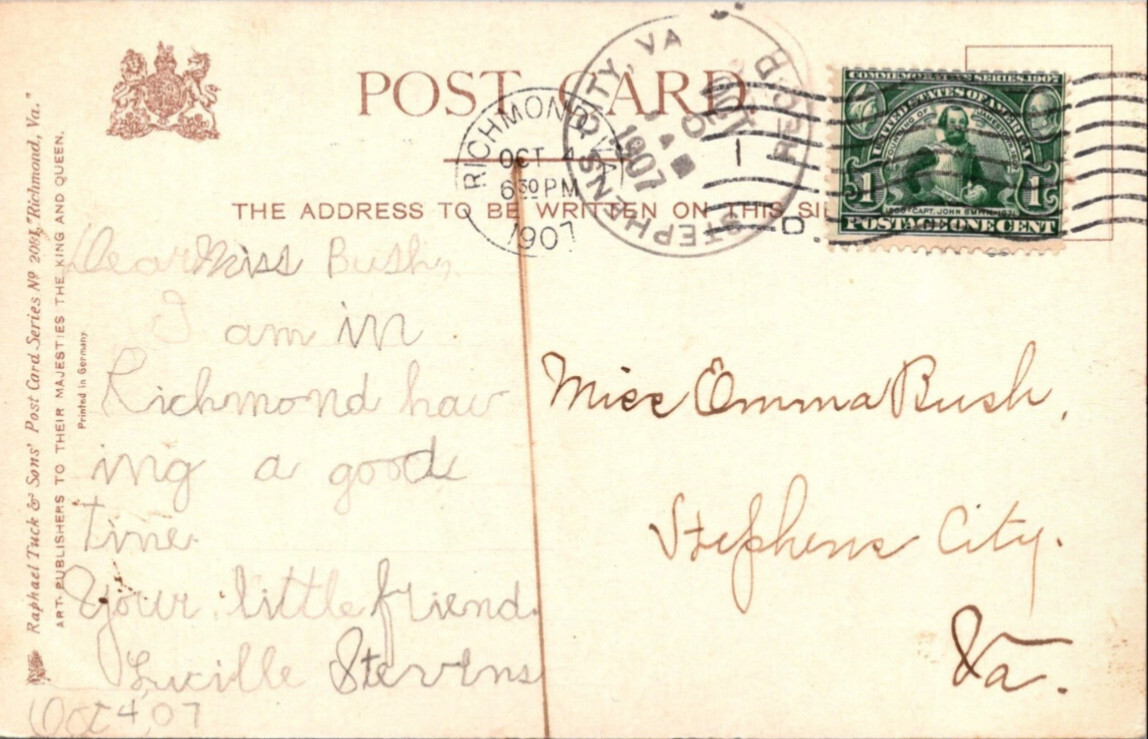 POST CARD
THE ADDRESS TO BE WRITTEN ON THIS SI
Raphael Tuck & Sons' Post Card Series Nº 2081, "Richmond, Va."
ART PUBLISHERS TO THEIR MAJESTIES THE KING AND QUEEN.
Printed in Germany
RICHMOND, VA
OCT 4
6 30 PM
1907
STEPHENS CITY, VA
1907
REC'D.
D
COMMEMORATIVE SERIES 1907
UNITED STATES OF AMERICA
CAPT. JOHN SMITH
1 1
POSTAGE ONE CENT
Dear Miss Bush,
I am in
Richmond hav
ing a good
time.
Your little friend.
Lucille Stevens
Oct 4, 07
Miss Emma Bush,
Stephens City.
Va.